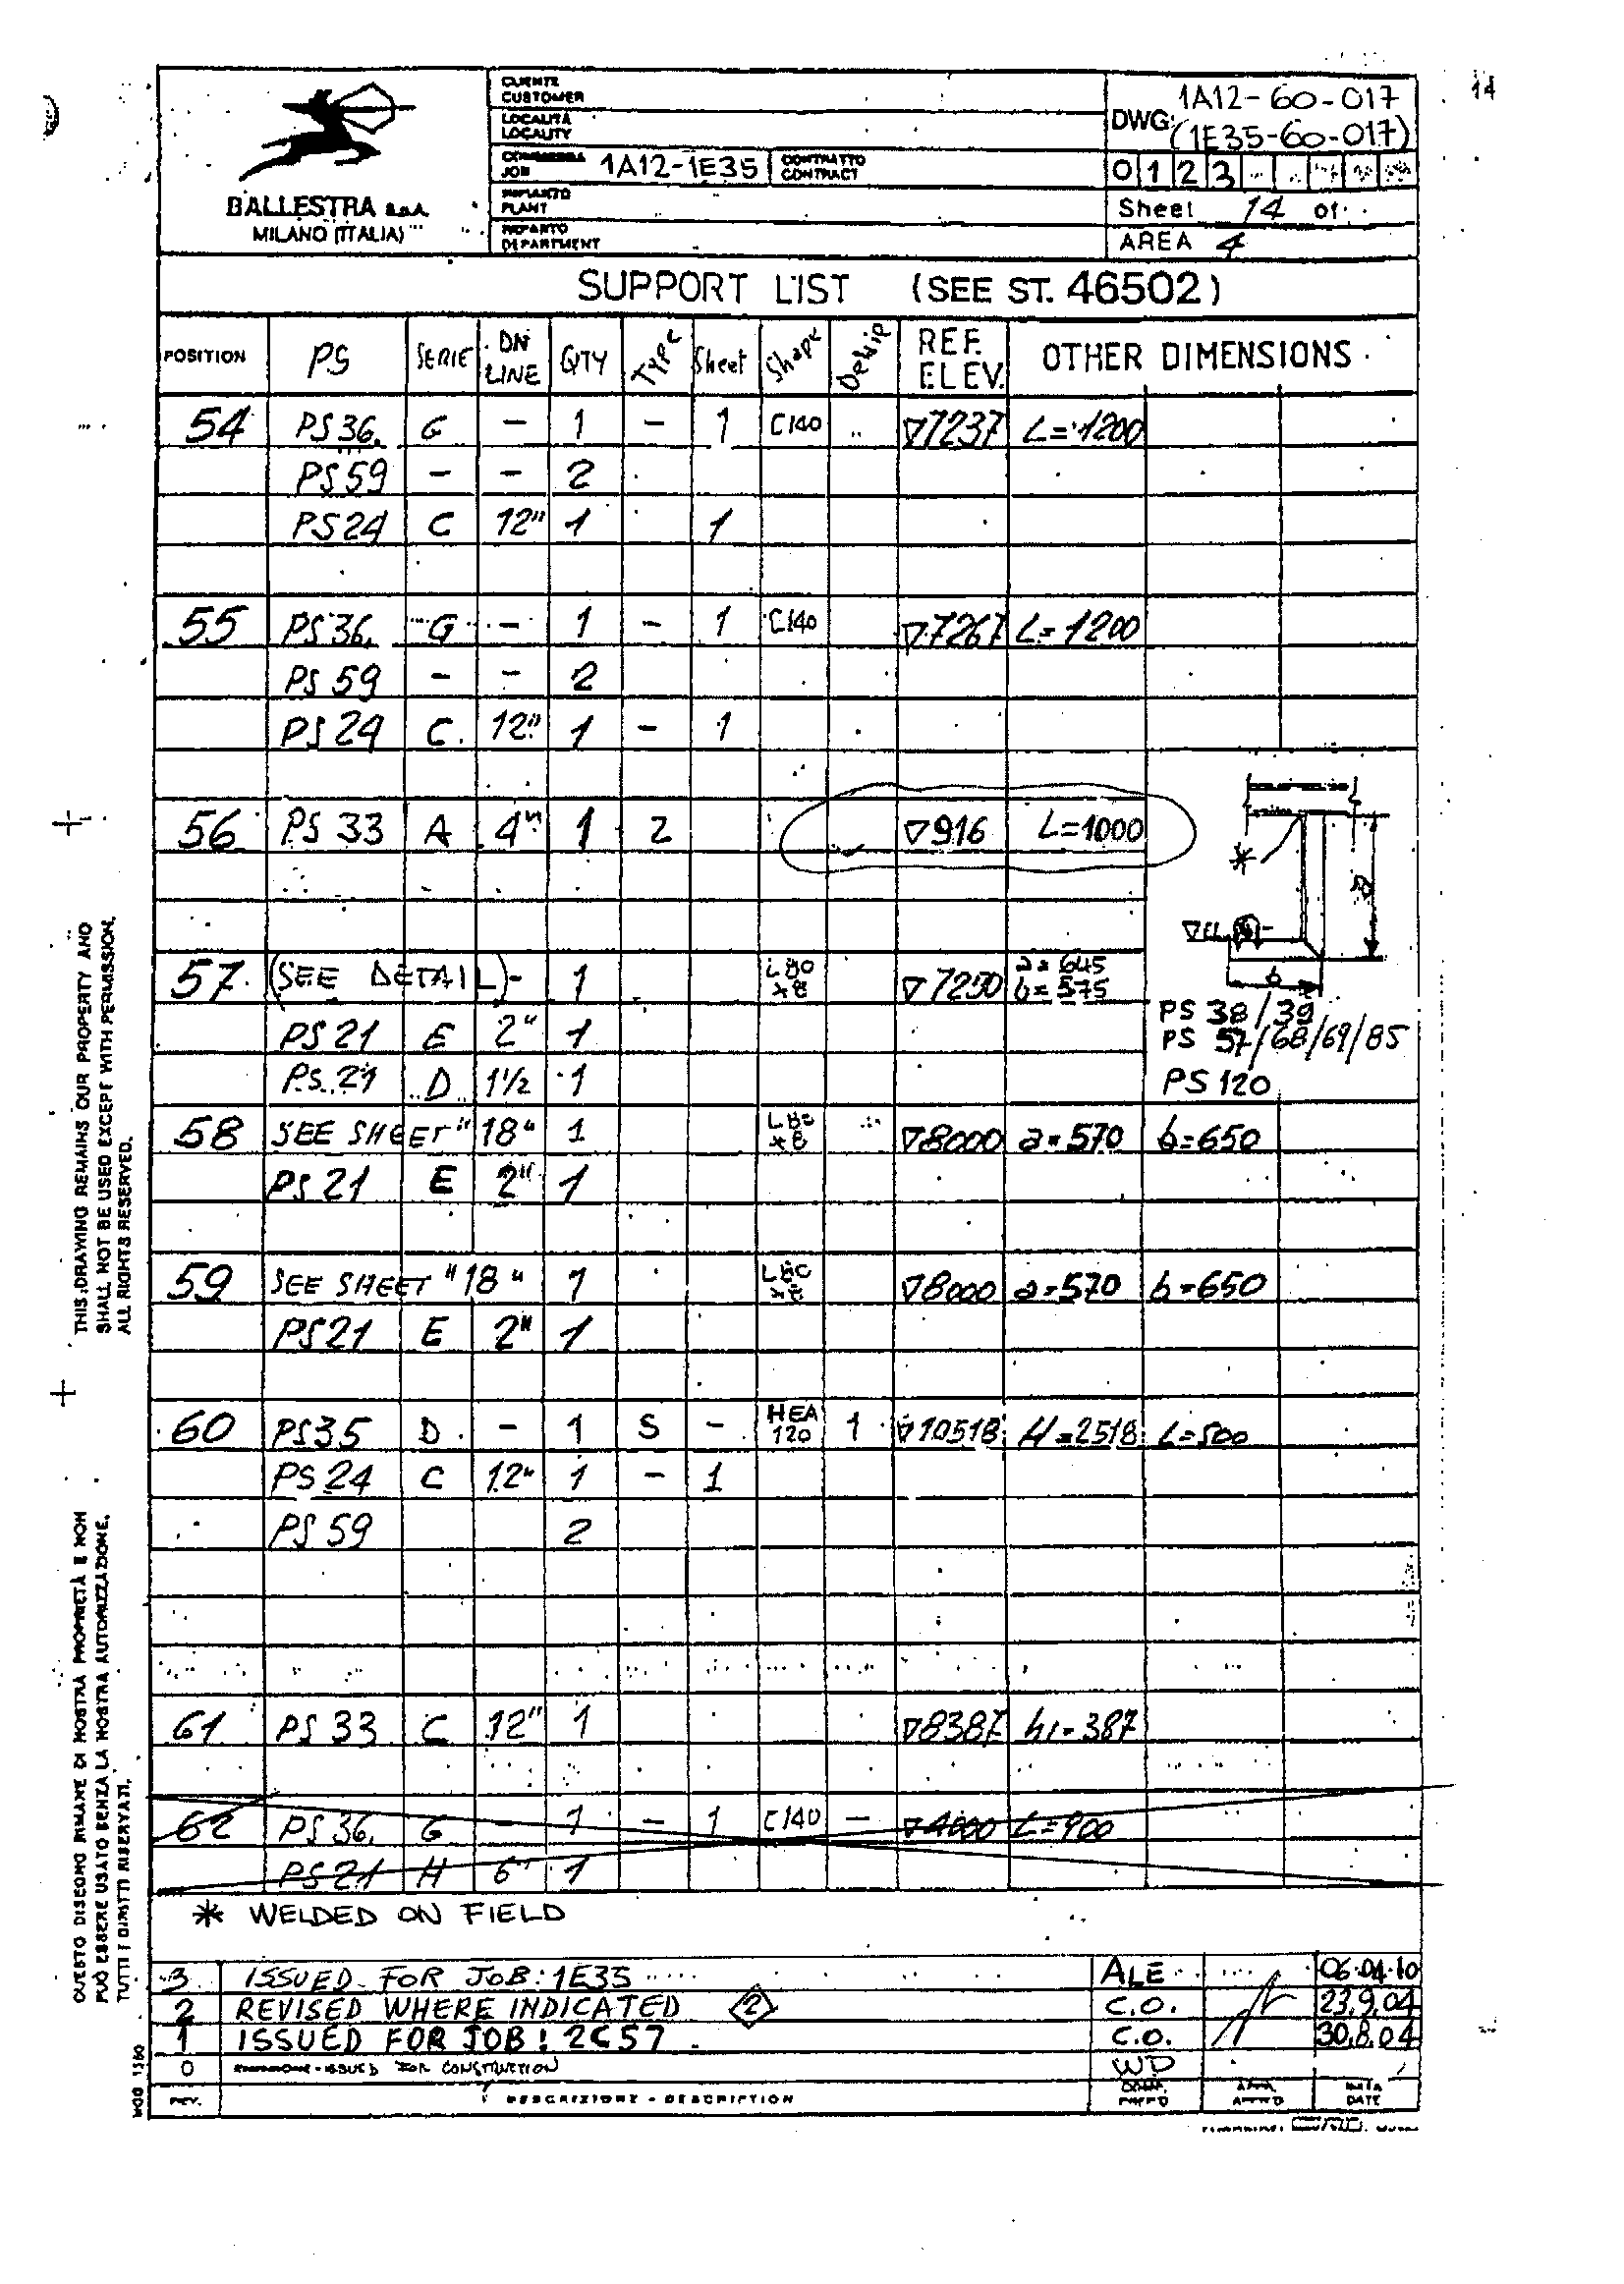 14
BALLESTRA S.p.A.
MILANO (ITALIA)
CLIENTE
CUSTOMER
LOCALITÀ
LOCALITY
COMMESSA
JOB 1A12-1E35
CONTRATTO
CONTRACT
IMPIANTO
PLANT
REPARTO
DEPARTMENT
1A12-60-017
DWG: (1E35-60-017)
0 1 2 3
Sheet 14 of
AREA 4
SUPPORT LIST (SEE ST. 46502)
POSITION PS SERIE DN LINE QTY Type Sheet Shape REF. ELEV. OTHER DIMENSIONS
54 PS 36. G - 1 - 1 C140 ▽7237 L=1200
PS 59 - - 2
PS 24 C 12" 1 1
55 PS 36. G - 1 - 1 C140 ▽7267 L=1200
PS 59 - - 2
PS 24 C. 12" 1 - 1
56 PS 33 A 4" 1 2 ▽916 L=1000
*
▽EL.
b
57. (SEE DETAIL) - 1 L80 x8 ▽7250 a=645 b=575
PS 38/39
PS 21 E 2" 1
PS 57/68/69/85
PS 21 D 1½ 1
PS 120
58 SEE SHEET "18" 1 L80 x8 ▽8000 a=570 b=650
PS 21 E 2" 1
59 SEE SHEET "18" 1 L80 x8 ▽8000 a=570 b=650
PS 21 E 2" 1
60 PS 35 D - 1 S - HEA 120 1 ▽10518 H=2518 L=500
PS 24 C 12" 1 - 1
PS 59 2
61 PS 33 C 12" 1 ▽8387 h1=387
62 PS 36. G - 1 - 1 C140 - ▽4000 L=900
PS 21 H 6" 1
* WELDED ON FIELD
3 ISSUED FOR JOB: 1E35 ALE 06.04.10
2 REVISED WHERE INDICATED 2 C.O. 23.9.04
1 ISSUED FOR JOB: 2C57 C.O. 30.8.04
0 ISSUED FOR CONSTRUCTION WD
REV. DESCRIZIONE - DESCRIPTION DATA DATE
THIS DRAWING REMAINS OUR PROPERTY AND
SHALL NOT BE USED EXCEPT WITH PERMISSION.
ALL RIGHTS RESERVED.
QUESTO DISEGNO RIMANE DI NOSTRA PROPRIETÀ E NON
PUÒ ESSERE USATO SENZA LA NOSTRA AUTORIZZAZIONE.
TUTTI I DIRITTI RISERVATI.